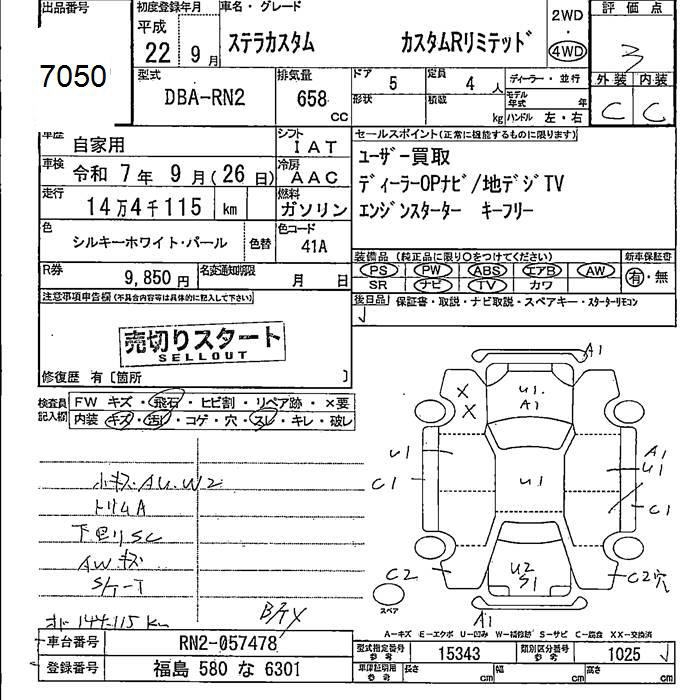 出品番号
7050
初度登録年月
平成
22 9 月
車名・グレード
ステラカスタム カスタムRリミテッド
2WD
・
4WD
評価点
3
外装 内装
C C
型式
DBA-RN2
排気量
658 CC
ドア 5
形状
定員 4 人
積載 kg
ディーラー・並行
モデル年式 年
ハンドル 左・右
車歴 自家用
シフト IAT
車検 令和 7 年 9 月 (26 日)
冷房 AAC
走行 14万4千115 km
燃料 ガソリン
色 シルキーホワイト・パール 色替
色コード 41A
R券 9,850 円
名変通知期限 月 日
セールスポイント(正常に機能するものに限ります)
ユーザー買取
ディーラーOPナビ/地デジTV
エンジンスターター キーフリー
装備品 (純正品に限り○をつけてください)
PS PW ABS エアB AW
SR ナビ TV カワ
新車保証書
有・無
後日品 保証書・取説・ナビ取説・スペアキー・スターターリモコン
注意事項申告欄(不具合内容等は具体的に記入して下さい)
売切りスタート
SELLOUT
修復歴 有 [箇所 ]
検査員記入欄
FW キズ・飛石・ヒビ割・リペア跡・×要
内装 キズ・汚れ・コゲ・穴・スレ・キレ・破レ
小キズ・AU.W2
トリムA
下回りSC
AWキズ
144.115 km
A1
X
X
U1.
A1
U1
C1
U1
A1
U1
C1
C2
U2
S1
C2穴
A1
スペア
A−キズ E−エクボ U−凹み W−補修跡 S−サビ C−腐食 XX−交換済
車台番号 RN2-057478
登録番号 福島 580 な 6301
型式指定番号 参考 15343
類別区分番号 参考 1025
車庫証明用 参考 長さ cm 幅 cm 高さ cm